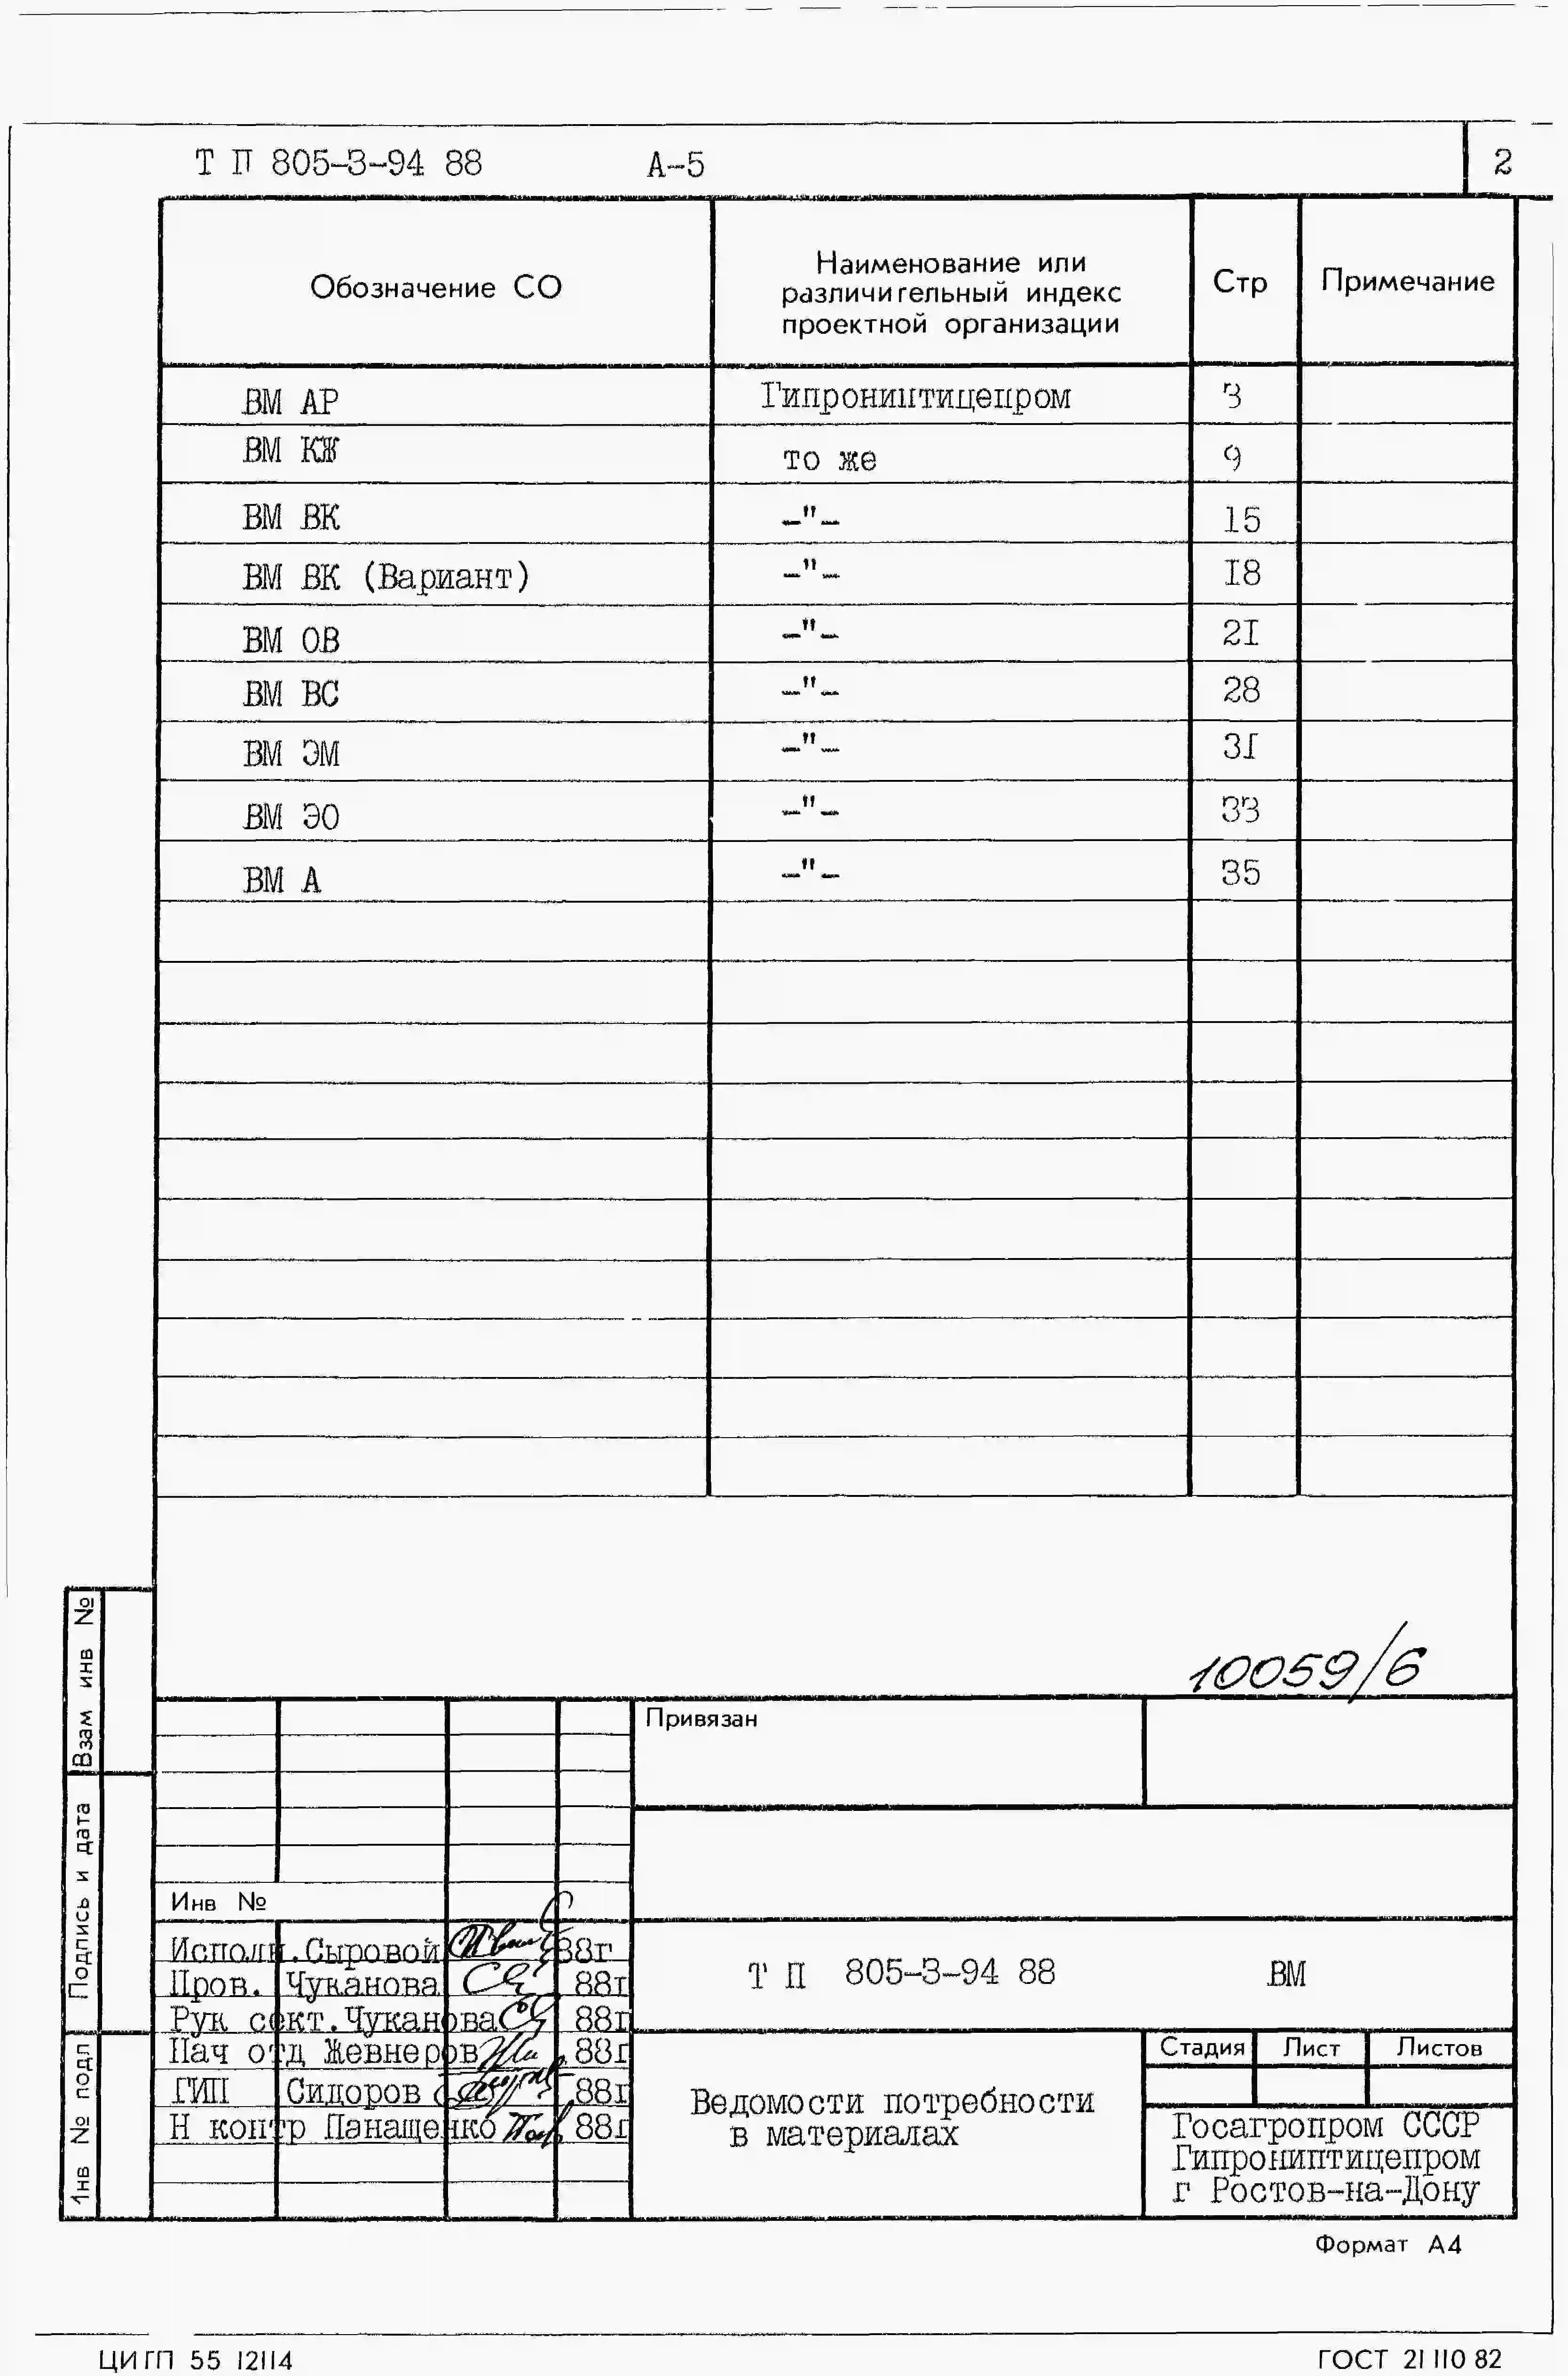 Т П 805-3-94 88 А-5 2
Обозначение СО
Наименование или
различительный индекс
проектной организации
Стр
Примечание
ВМ АР Гипрониптицепром 3
ВМ КЖ то же 9
ВМ ВК -"- 15
ВМ ВК (Вариант) -"- 18
ВМ ОВ -"- 21
ВМ ВС -"- 28
ВМ ЭМ -"- 31
ВМ ЭО -"- 33
ВМ А -"- 35
10059/6
Привязан
Взам инв №
Подпись и дата
Инв № подл
Инв №
Исполн. Сыровой 88г
Пров. Чуканова 88г
Рук сект. Чуканова 88г
Нач отд Жевнеров 88г
ГИП Сидоров 88г
Н контр Панащенко 88г
Т П 805-3-94 88 ВМ
Ведомости потребности
в материалах
Стадия Лист Листов
Госагропром СССР
Гипрониптицепром
г Ростов-на-Дону
Формат А4
ЦИТП 55 12114
ГОСТ 21 110 82